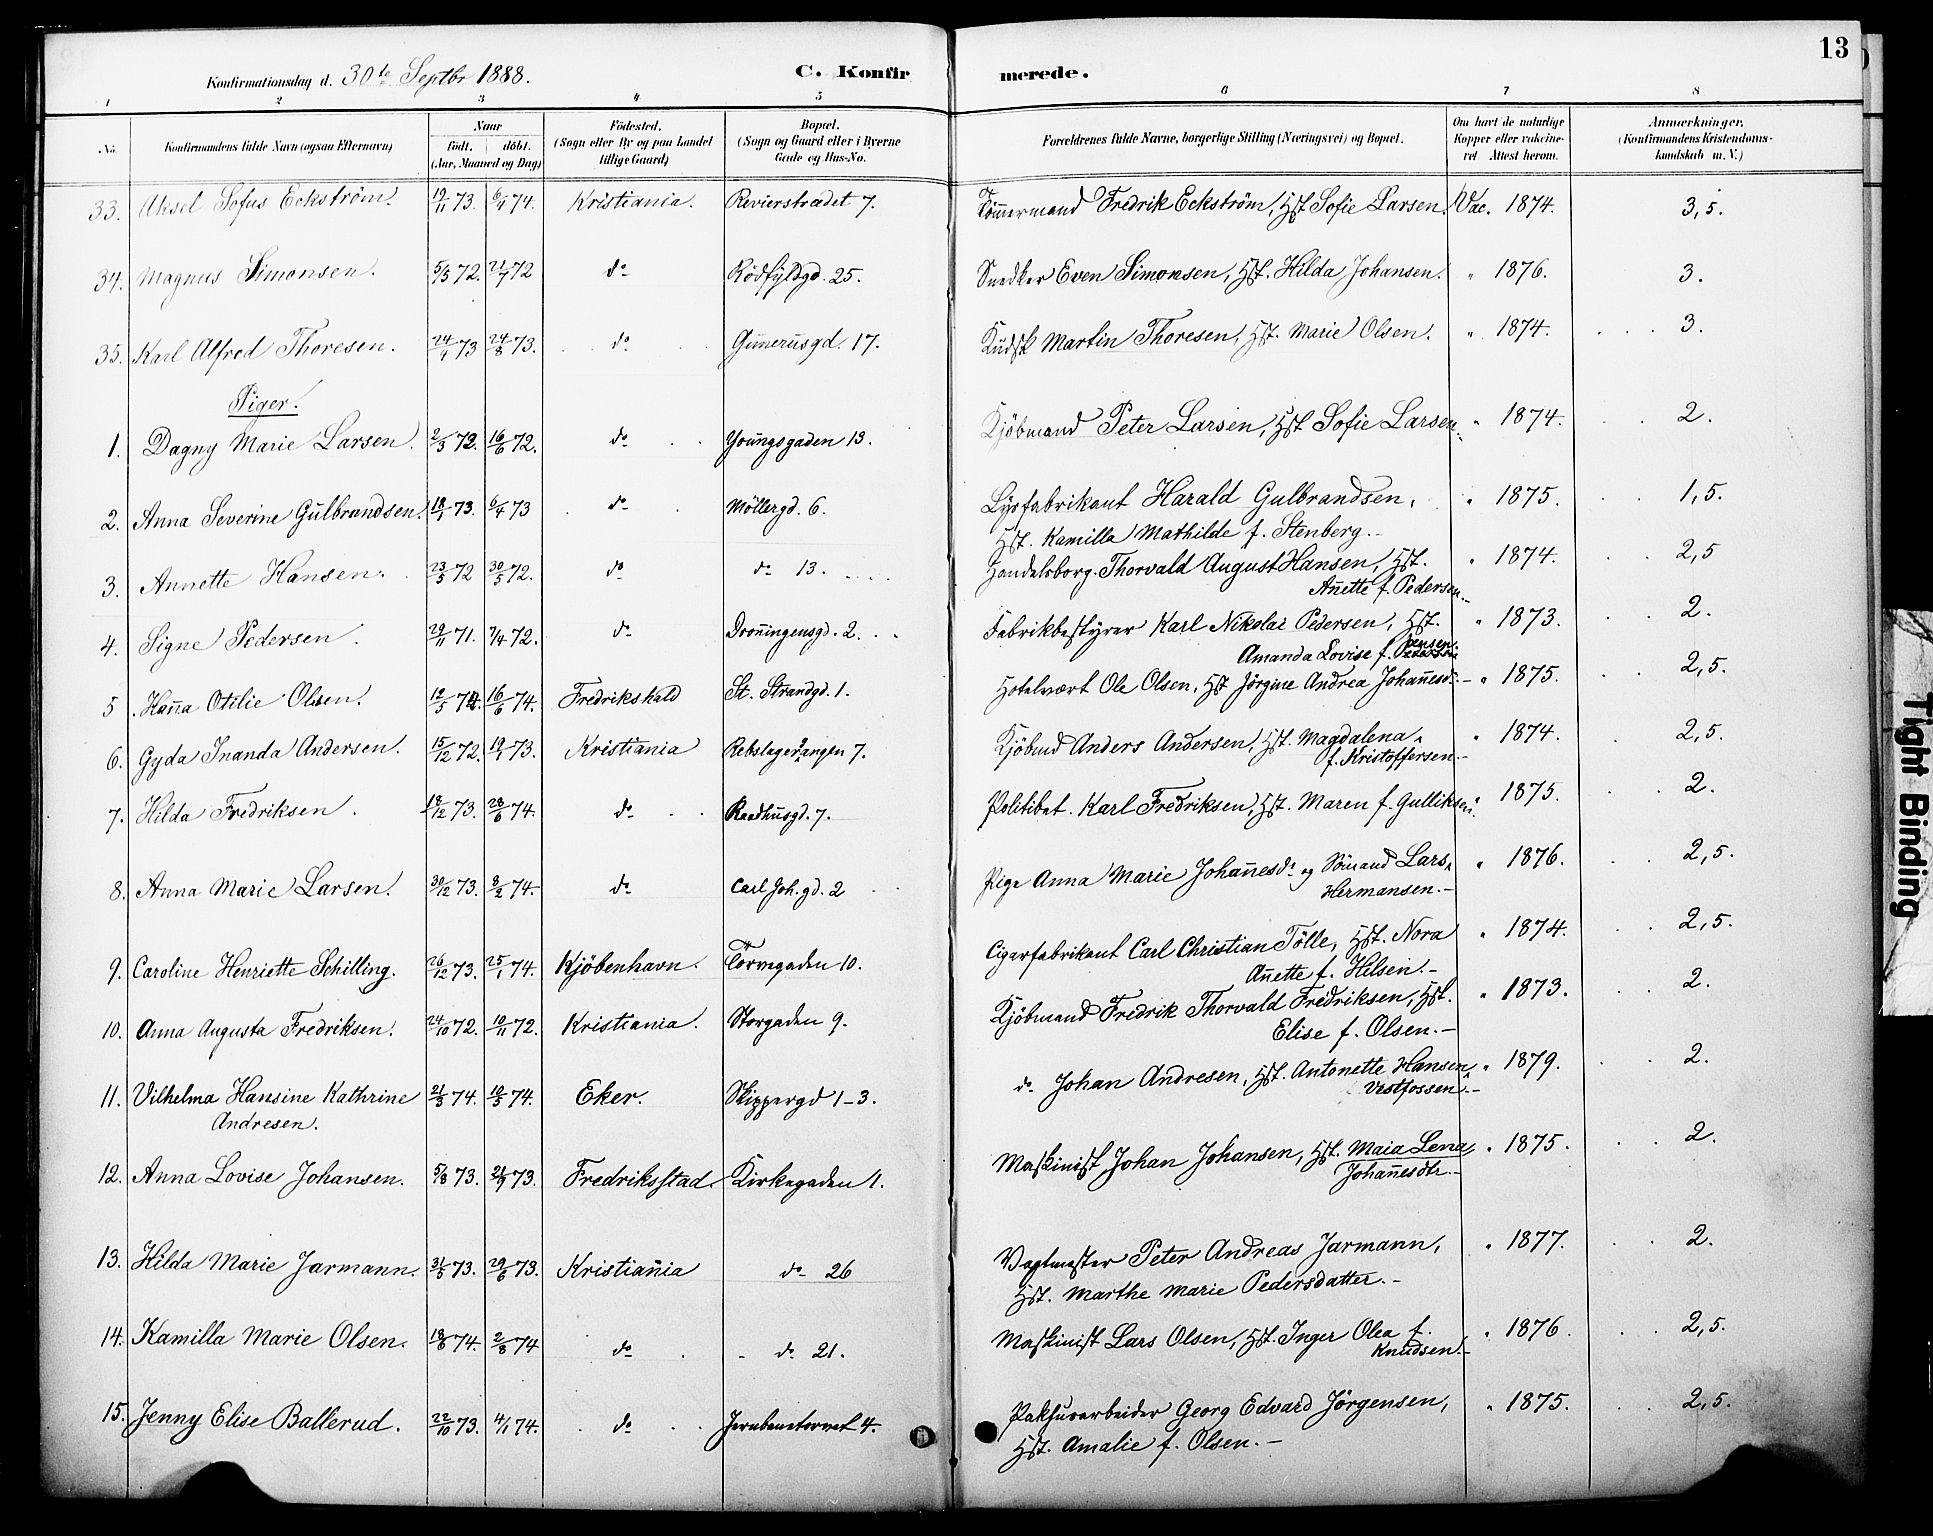 13
Konfirmationsdag d. 30te Septbr 1888.
C. Konfirmerede.
1 2 3 4 5 6 7 8
No.
Konfirmandens fulde Navn (ogsaa Efternavn)
Naar
født. døbt.
(Aar, Maaned og Dag)
Födested.
(Sogn eller By og paa Landet
tillige Gaard)
Bopæl.
(Sogn og Gaard eller i Byerne
Gade og Hus-No.
Forældrenes fulde Navne, borgerlige Stilling (Næringsvei) og Bopæl.
Om havt de naturlige
Kopper eller vakcine-
ret Attest herom.
Anmærkninger.
(Konfirmandens Kristendoms-
kundskab m. V.)
33. Aksel Sofus Eckström. 19/11 73. 6/4 74. Kristiania. Revierstrædet 7. Tömmermand Fredrik Eckström, Hst. Sofie Larsen. Vac. 1874. 3,5.
34. Magnus Simonsen. 5/3 72. 21/7 72 do Rödfyldgd. 25. Snedker Even Simonsen, Hst. Hilda Johansen. " 1876. 3.
35. Karl Alfred Thoresen. 24/4 73 24/8 73. do Gunerusgd. 17. Kudsk Martin Thoresen, Hst. Marie Olsen. " 1874. 3.
Piger.
1. Dagny Marie Larsen. 2/3 72. 16/6 72. do Youngsgaden 13. Kjöbmand Peter Larsen, Hst. Sofie Larsen. " 1874. 2.
2. Anna Severine Gulbrandsen. 18/1 73. 6/4 73 do Möllergd. 6. Lysfabrikant Harald Gulbrandsen, " 1875. 1,5.
Hst. Kamilla Mathilde f. Stenberg.-
3. Annette Hansen. 23/3 72 30/5 72. do do 13. Handelsborg. Thorvald August Hansen, Hst. " 1874. 2,5
Anette f. Pedersen.-
4. Signe Pedersen. 29/11 71. 7/4 72. do Droningensgd. 2. Fabrikbestyrer Karl Nikolai Pedersen, Hst. " 1873. 2.
Amanda Lovise f.
5. Hana Otilie Olsen. 12/5 74. 16/6 74. Fredrikshald St. Strandgd. 1. Hotelvært Ole Olsen, Hst Jörgine Andrea Johanesd.- " 1875. 2,5.
6. Gyda Inanda Andersen. 15/12 72. 19/1 73. Kristiania Rebslagergangen 7. Kjöbmd Anders Andersen, Hst. Magdalena " 1874. 2,5.
f. Kristoffersen.-
7. Hilda Fredriksen. 18/12 73. 28/6 74. do Raadhusgd. 7. Politibet. Karl Fredriksen, Hst. Maren f. Gulliksen. " 1875. 2.
8. Anna Marie Larsen. 30/12 73. 8/2 74. do Carl Joh. gd. 2 Pige Anna Marie Johanesdr og Sömand Lars " 1876. 2,5.
Hermansen.-
9. Caroline Henriette Schilling. 26/12 73. 25/1 74. Kjöbenhavn. Torvegaden 10. Cigarfabrikant Carl Christian Tölle, Hst. Nora " 1874. 2,5.
Anette f. Hilsen.-
10. Anna Augusta Fredriksen. 24/10 72. 10/11 72. Kristiania. Storgaden 9. Kjöbmand Fredrik Thorvald Fredriksen, Hst. " 1873. 2.
Elise f. Olsen.-
11. Vilhelma Hansine Kathrine 21/3 74. 10/5 74. Eker. Skippergd 1-3. do Johan Andresen, Hst. Antonette Hansen " 1879. 2.
Andresen. Vestfossen.-
12. Anna Lovise Johansen. 5/8 73. 21/9 73. Fredriksstad. Kirkegaden 1. Maskinist Johan Johansen, Hst. Maia Lena " 1875. 2.
Johanesdtr.-
13. Hilda Marie Jarmann. 31/5 73. 29/6 73. Kristiania do 26 Vagtmester Peter Andreas Jarmann, " 1877. 2.
Hst. Marthe Marie Pedersdatter.-
14. Kamilla Marie Olsen. 18/6 74. 2/8 74 do do 21. Maskinist Lars Olsen, Hst. Inger Olea f. " 1876. 2,5.
Knudsen.-
15. Jenny Elise Ballerud. 22/10 73. 4/1 74. do Jernbanetorvet 4. Pakhusarbeider Georg Edvard Jörgensen, " 1875. 2,5.
Hst. Amalie f. Olsen.-
Tight Binding